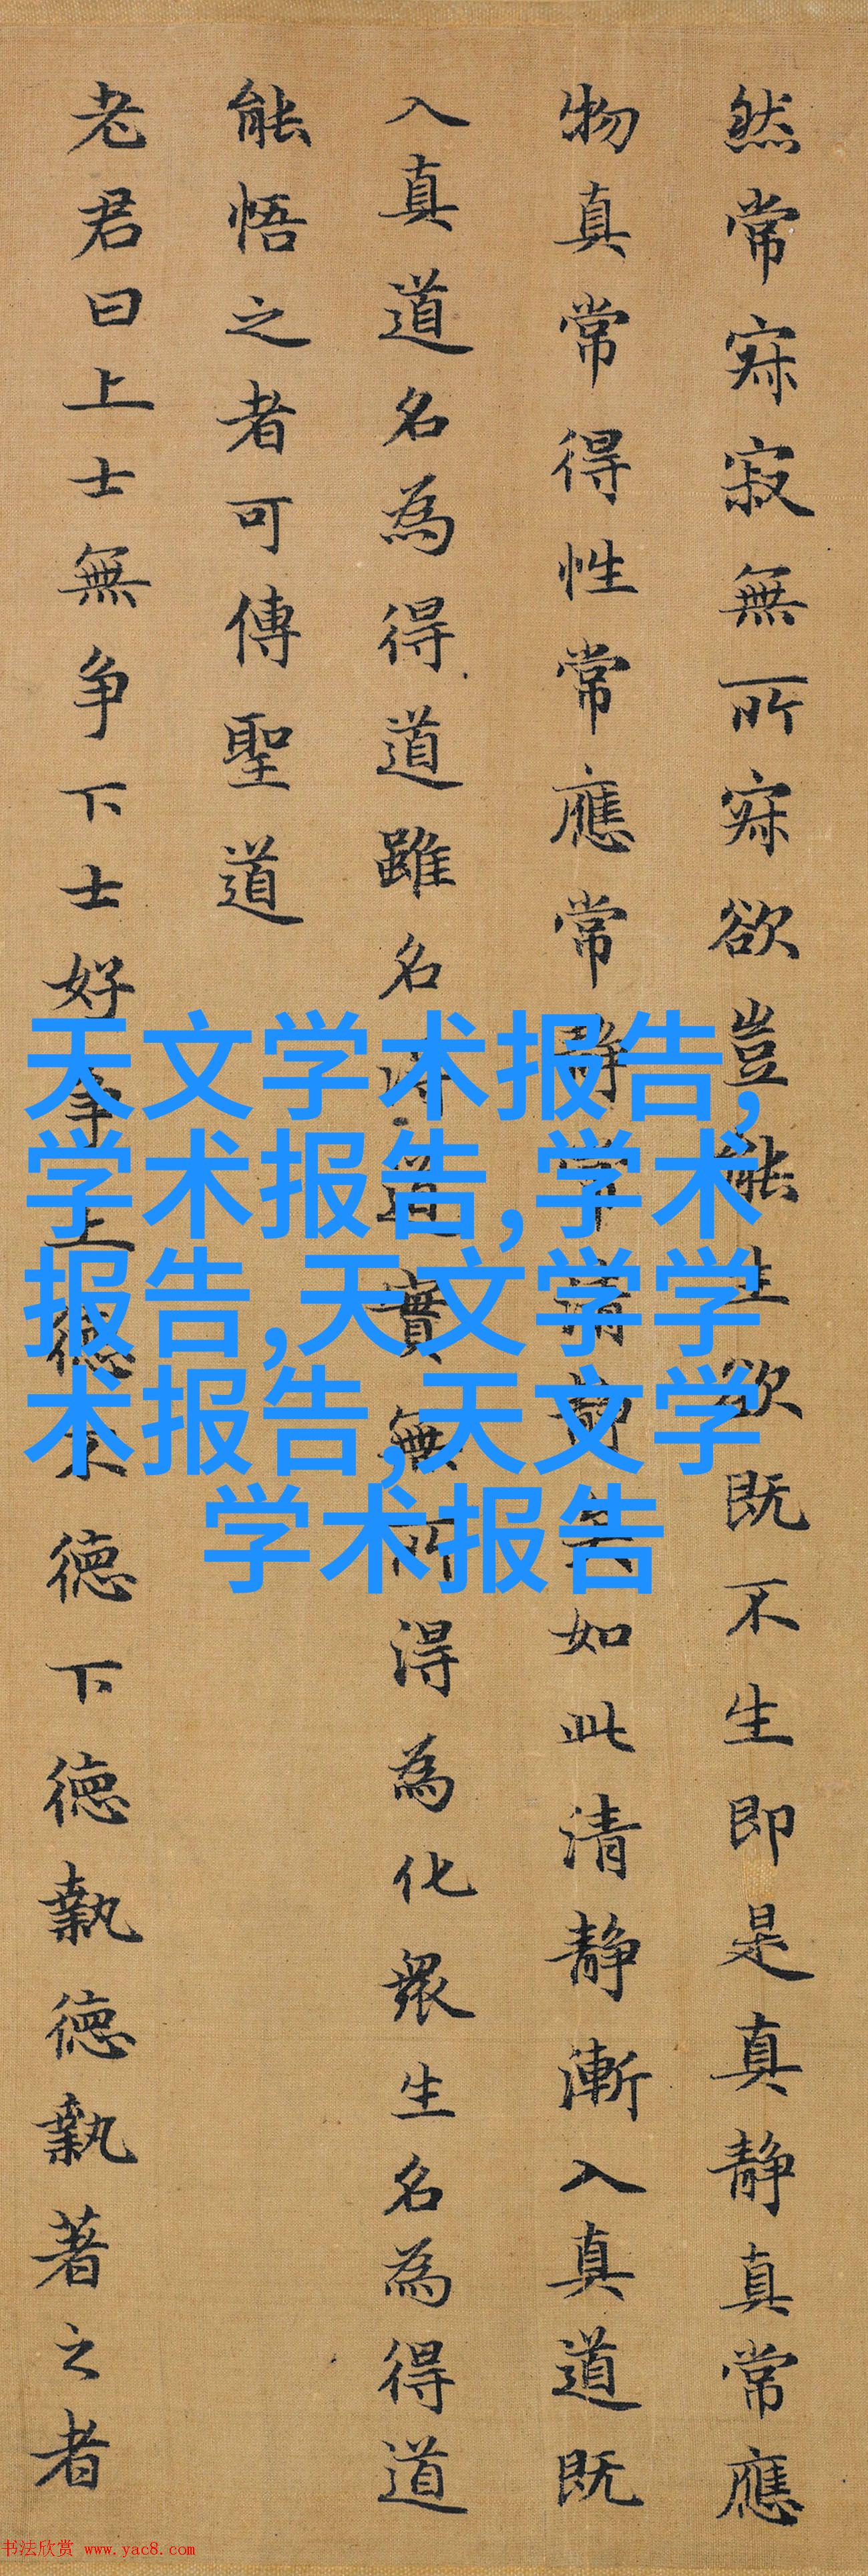 然常寂寂無所寂欲豈能生欲既不生即是真静真常應
物真常得性常應常静常清静矣如此清静漸入真道既
入真道名為得道雖名得道實無所得為化衆生名為得道
能悟之者可傳聖道
老君曰上士無争下士好争上德不德下德執德執著之者
天文学术报告,
学术报告,学术
报告,天文学学
术报告,天文学
学术报告
书法欣赏 www.yac8.com